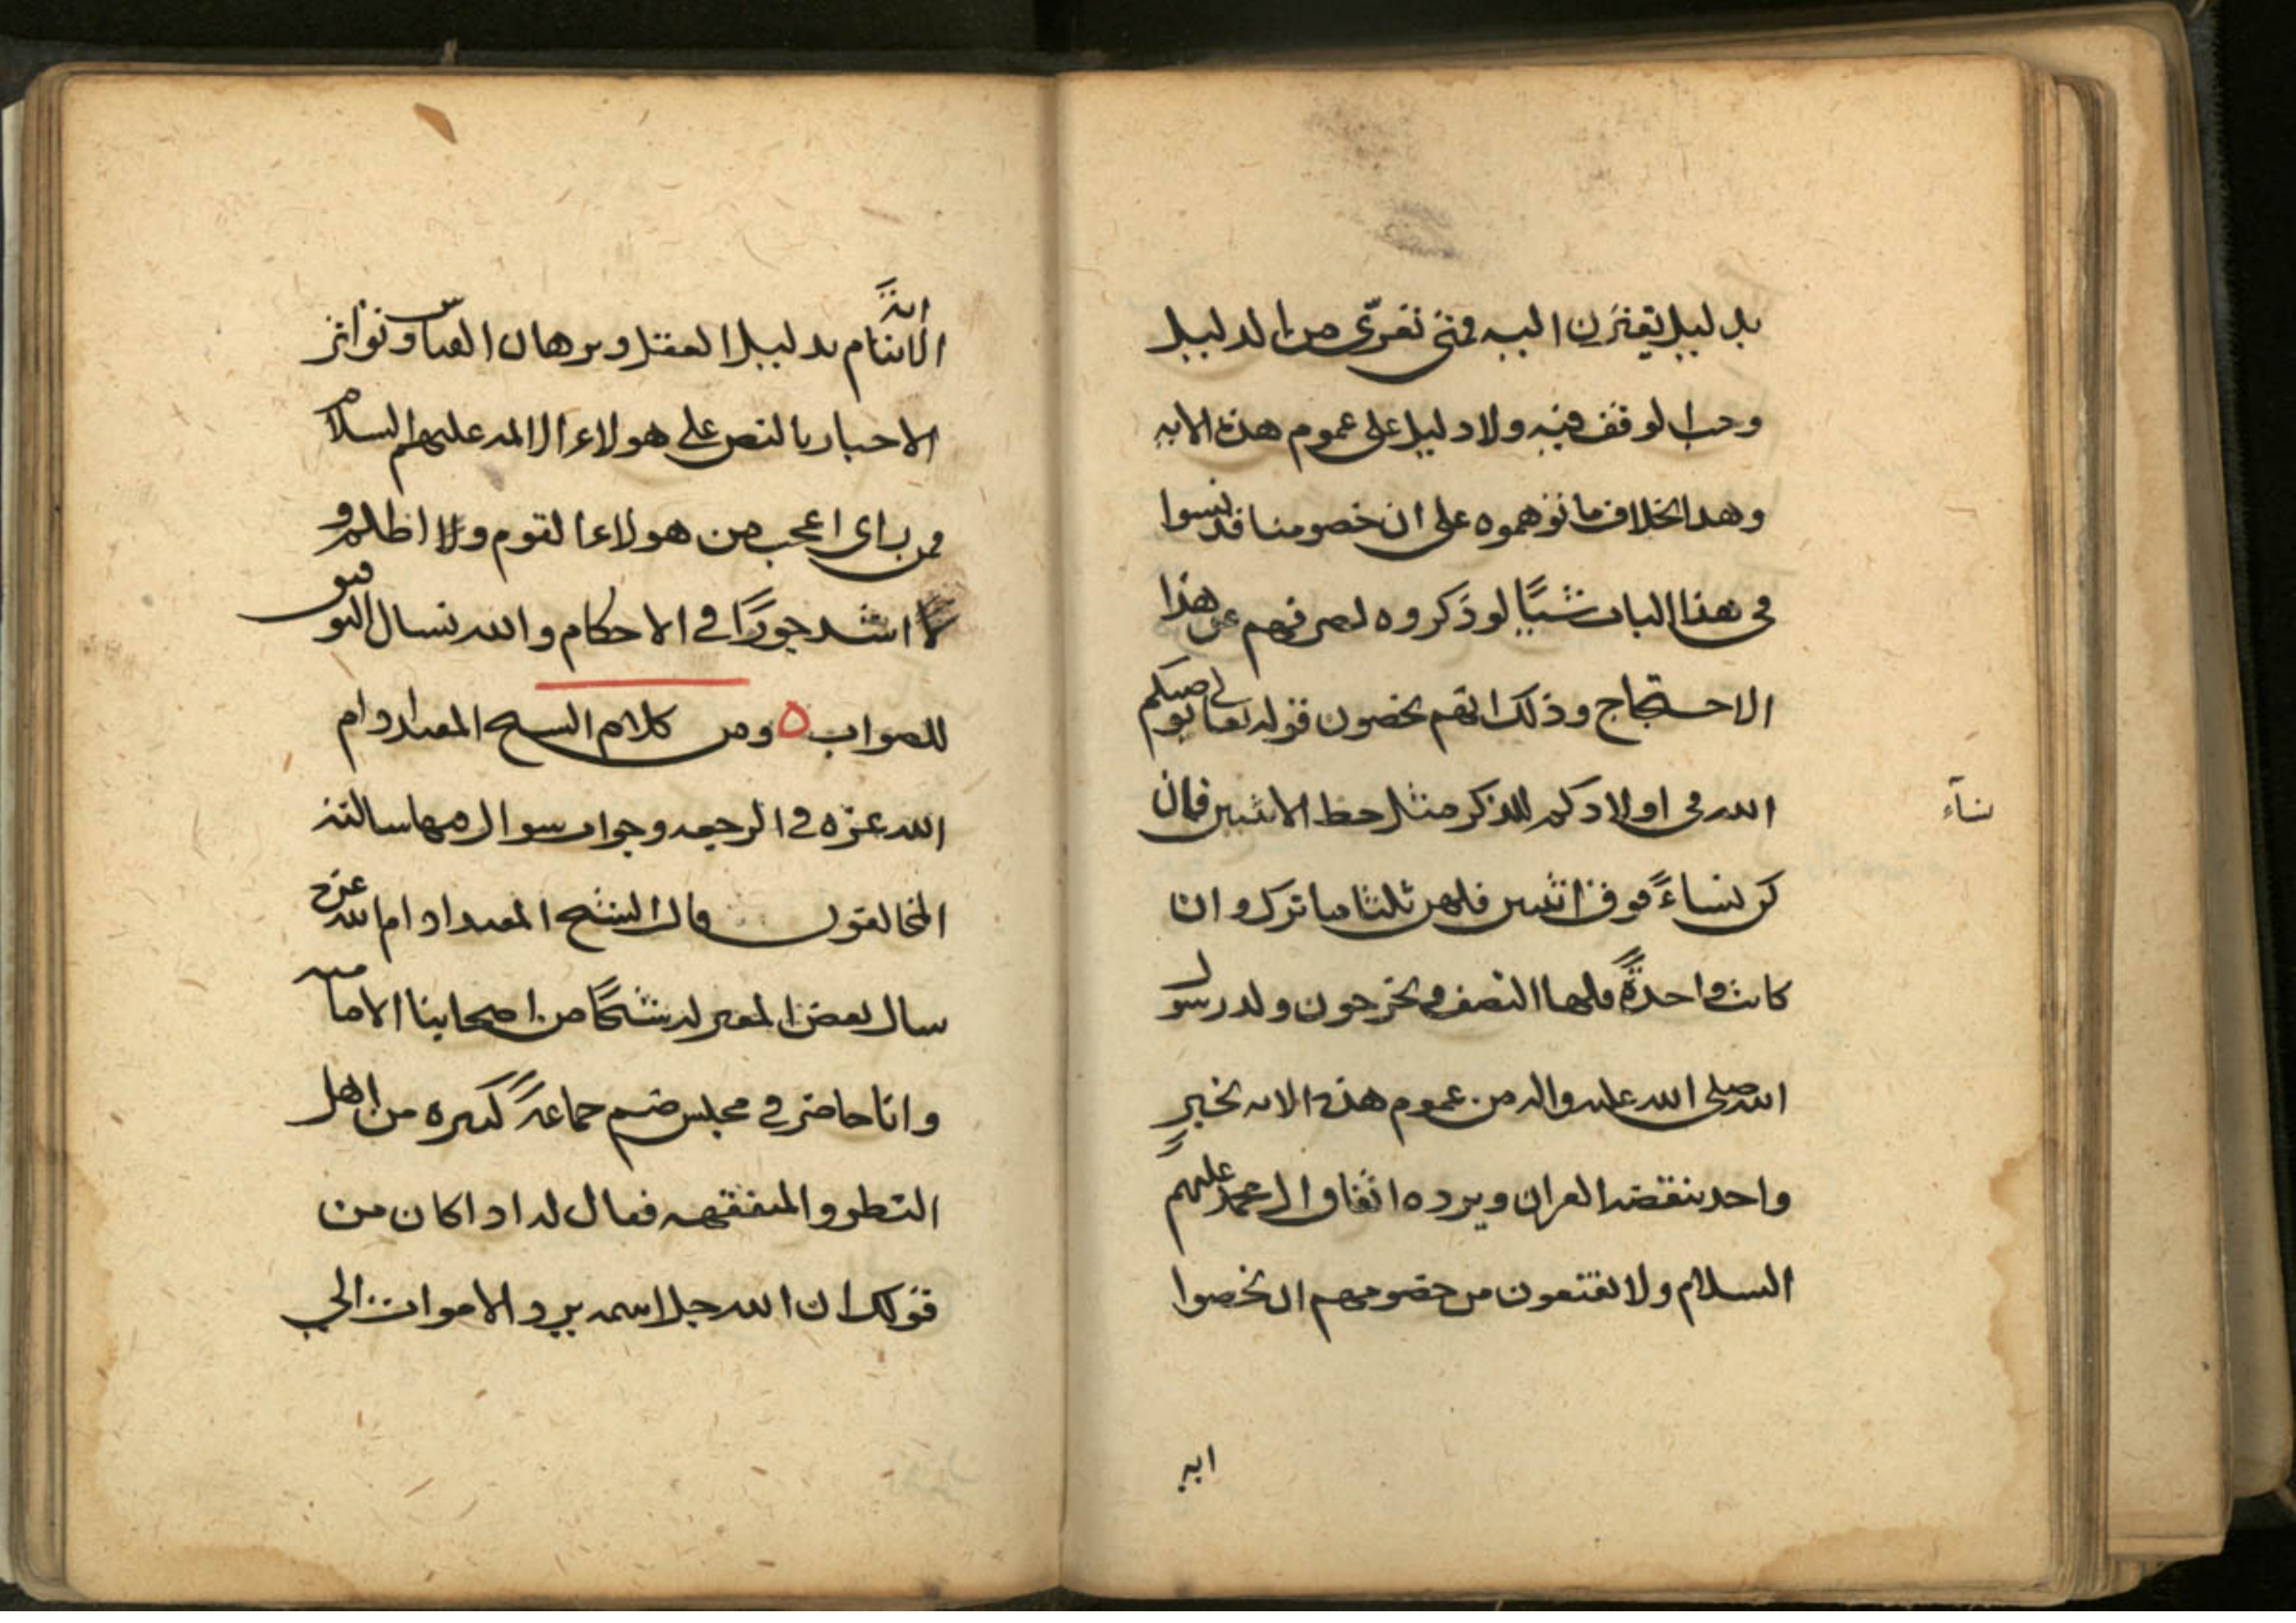 بدليل يقترن اليه فمتى تعرّى من الدليل
وجب الوقف فيه ولا دليل على عموم هذه الايه
وهذا بخلاف ما توهموه على ان خصومنا قد نسوا
في هذا الباب شيئًا لو ذكروه لصرفهم عن هذا
الاحتجاج وذلك انهم يخصون قوله تعالى يوصيكم
الله في اولادكم للذكر مثل حظ الانثيين فان
كن نساءً فوق اثنتين فلهن ثلثا ما ترك وان
كانت واحدةً فلها النصف ويخرجون ولد رسول
الله صلى الله عليه واله من عموم هذه الايه بخبرٍ
واحد ينقضه القران ويرده اتفاق ال محمد عليهم
السلام ولا يقنعون من خصومهم ان يخصوا
نسآء
ايه
ايةَ
الانتقام بدليل العقل وبرهان القياس وتواتر
الاخبار بالنص على هولاء الائمه عليهم السلام
فمن راى اعجب من هولاء القوم ولا اظلم و
لا اشد جورًا في الاحكام والله نسال التوفيق
للصواب ه ومن كلام الشيخ المفيد ادام
الله عزه في الرجعه وجواب سوال فيها سالته
المخالفون قال الشيخ المفيد ادام الله عزه
سال بعض المعتزله شيخًا من اصحابنا الاماميه
وانا حاضر في مجلس ضم جماعةً كثيره من اهل
النظر والمتفقهه فقال له اذا كان من
قولك ان الله جل اسمه يرد الاموات الى